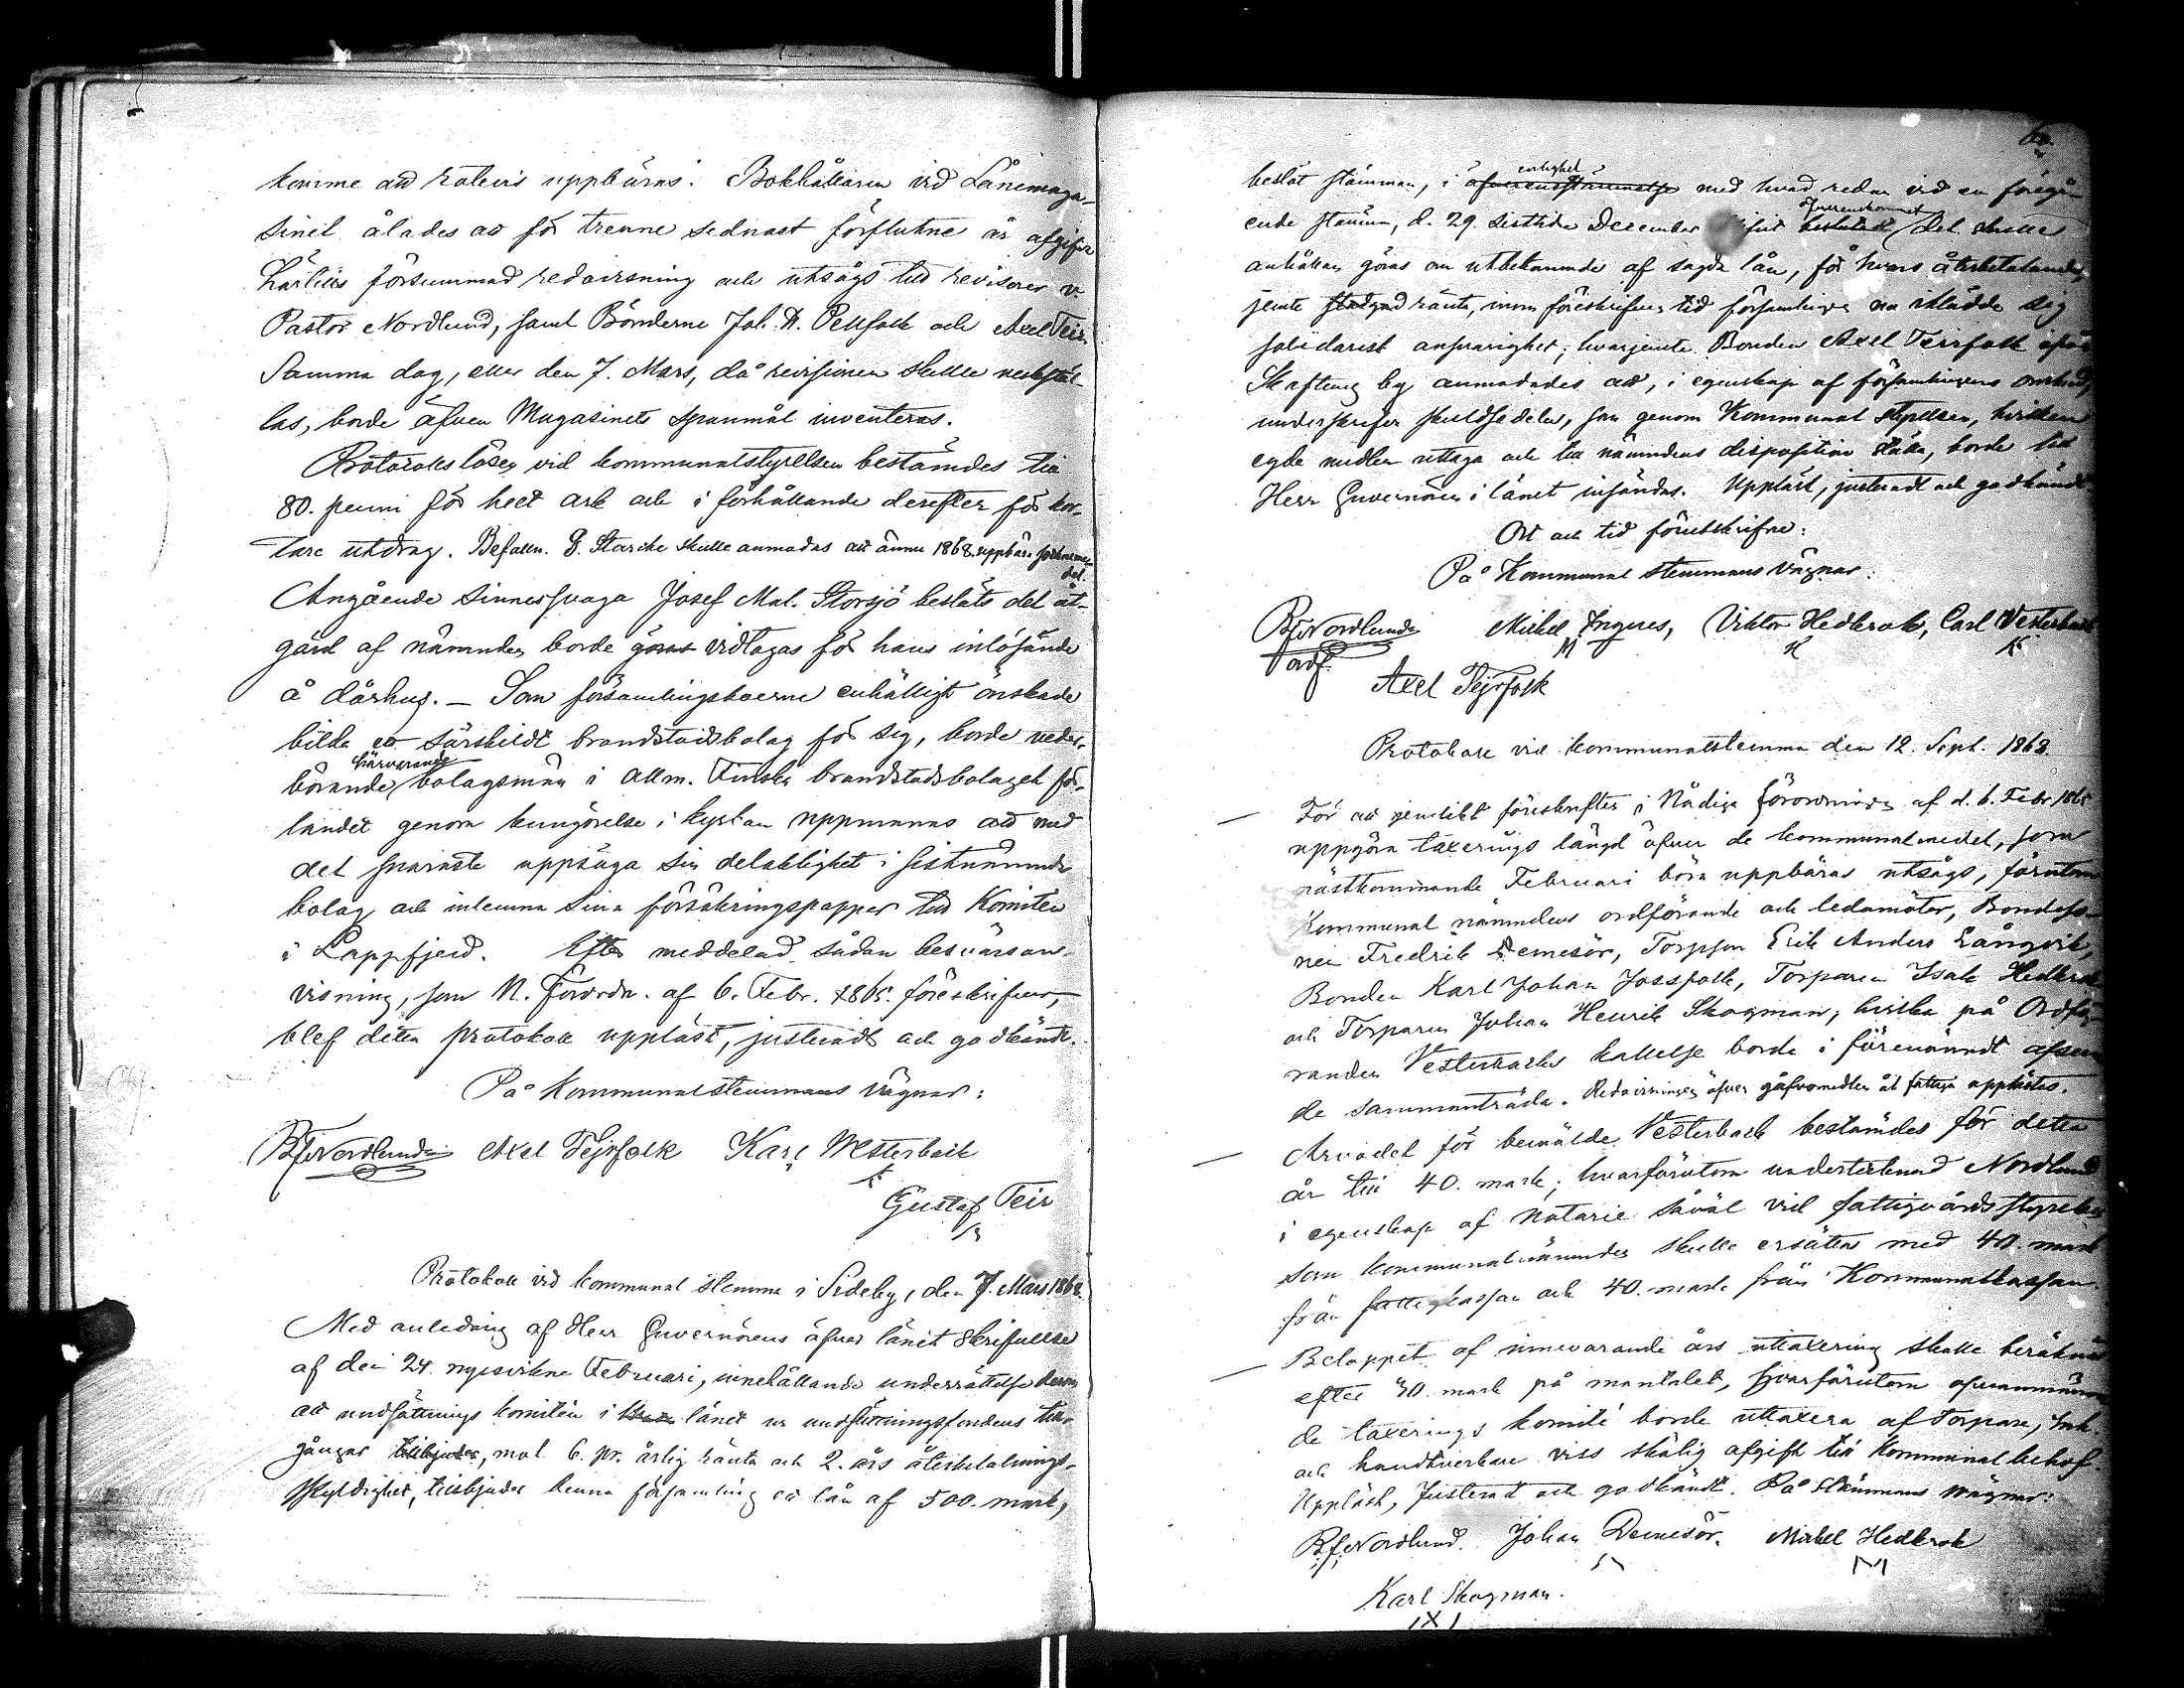 komme att rotevis uppbäras. Bokhållaren vid Lånemaga-
sinet ålades att för trenne sednast förflutne år afgifva
härtills försummad redovisning och utsågs till revisorer v.
Pastor Nordlund, samt Bönderne Joh. H. Pellfolk och Axel Teir.
Samma dag, eller den 7. Mars, då revisionen skulle verkstäl-
las, borde äfven Magasinets spanmål inventeras.
Protokolls lösen vid kommunalstyrelsen bestämdes till
80. penni för helt ark och i förhållande derefter för kor-
tare utdrag. Befalln. G. Starcke skulle anmodas att ännu 1868. uppbära
Angående sinnessvaga Josef Mal. Storsjö beslöts det åt-
gärd af nämnden borde göras vidtagas för hans inlösande
å dårhus. — Som församlingsboerne enhälligt önskade
bilda ett särskildt brandstodsbolag för sig, borde veder-
härvarande
börande bolagsmän i Allm. Finska brandstodsbolaget för
landet genom kungörelse i kyrkan uppmanas att med
det snaraste uppsäga sin delaktighet i sistnämnde
bolag och inlemna sina försäkringspapper till Komiten
i Lappfjerd. Efter meddelad sådan besvärsan-
visning, som N. Förordn. af 6. Febr. 1865. föreskrifver,
blef detta protokoll uppläst, justeradt och godkändt.
På Kommunalstemmans vägnar:
B F Nordlund Axel Tejrfolk Karl Westerback
Gustaf Teir
Protokoll vid kommunal stemma i Sideby, den 7. Mars 1868.
Med anledning af Herr Guvernörens äfver länet skrifvelse
af den 24. nyssvikne Februari, innehållande underrättelse derom
att undsättnings komitén i länet ur undsättningsfondens till-
gångar tillbjuder, mot 6. pr. årlig ränta och 2. års återbetalnings-
skyldighet, tillbjuder denna församling ett lån af 500. mark,
60.
enlighet
beslöt stämman, i öfverensstämmelse med hvad redan vid en föregå-
öfverenskommet
ende stämma, d. 29. sistlidne December blifvit beslutadt det skulle
anhållan göras om utbekommande af sagda lån, för hvars återbetalande,
jemte stadgad ränta, inom föreskrifven tid församlingen nu iklädde sig
solidarisk ansvarighet; hvarjemte Bonden Axel Teirfolk ifrån
Skaftung by anmodades att, i egenskap af församlingens ombud,
underskrifva skuldsedeln, som genom Kommunal styrelsen, hvilken
egde medlen uttaga och till nämndens disposition ställa, borde till
Herr Guvernören i länet insändas. Uppläst, justeradt och godkändt
Ort och tid förutskrifne:
På Kommunal stemmans vägnar:
B F Nordlund Mickel Ingves, Viktor Hedkrok, Carl Vesterback
ordf.
Axel Tejrfolk
Protokoll vid kommunalstemma den 12. Sept. 1868.
För att jemlikt föreskriften i Nådiga Förordningen af d. 6. Febr 1865
uppgöra taxerings längd öfver de kommunalmedel, som
nästkommande Februari böra uppbäras utsågs, förutom
Kommunal nämndens ordförande och ledamöter, Bondeso-
nen Fredrik Demesör, Torpson Erik Anders Långvik,
Bonden Karl Johan Jossfolk, Torparen Isak Hedkrok
och Torparen Johan Henrik Skogman, hvilka på Ordfö-
randen Vesterbacks kallelse borde i förenämndt afseen-
de sammanträda. Redovisningen öfver gåfvomedlen åt fattiga upplästes.
Arvodet för bemälde Vesterback bestämdes för detta
år till 40. mark; hvarförutom undertecknad Nordlund
i egenskap af Notarie såväl vid fattigvårdsstyrelsen
som kommunalnämnden skulle ersättas med 40. mark
från fattigkassan och 40. mark från Kommunalkassan.
Beloppet af innevarande års uttaxering skulle beräknas
efter 30. mark på mantalet, hvarförutom ofvannämn-
de taxerings komité borde uttaxera af Torpare, Inh.
och handtverkare viss skälig afgift till Kommunal behof.
Uppläst, Justerad och godkändt. På Stämmans vägnar:
B. F. Nordlund. Johan Demesör. Mickel Hedkrok
Karl Skogman.